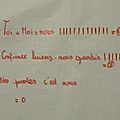 Toi + Moi = nous !!!!!!!!!!! =
Confiance laissez-nous grandir
No paroles c'est nous
= 0